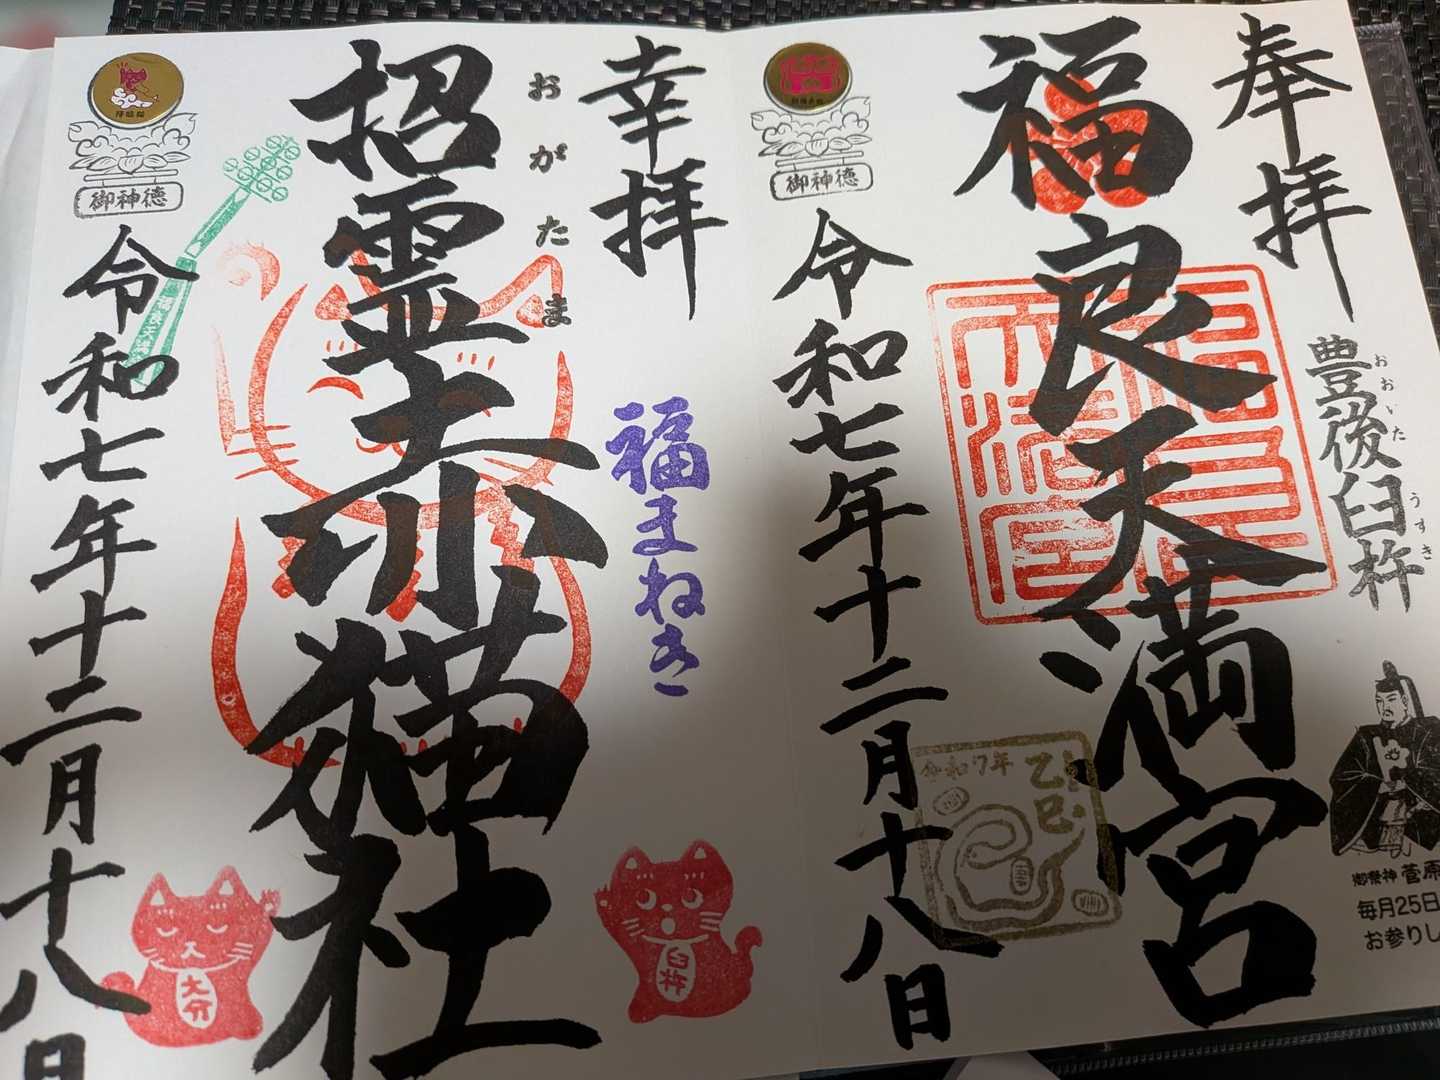 奉拝
豊後臼杵
おおいた
うすき
福良天満宮
令和七年十二月十八日
御神徳
令和7年
乙巳
御祭神 菅原
毎月25日
お参りし
幸拝
おがたま
招霊赤猫社
福まねき
令和七年十二月十八日
御神徳
福良天満
臼杵
大分